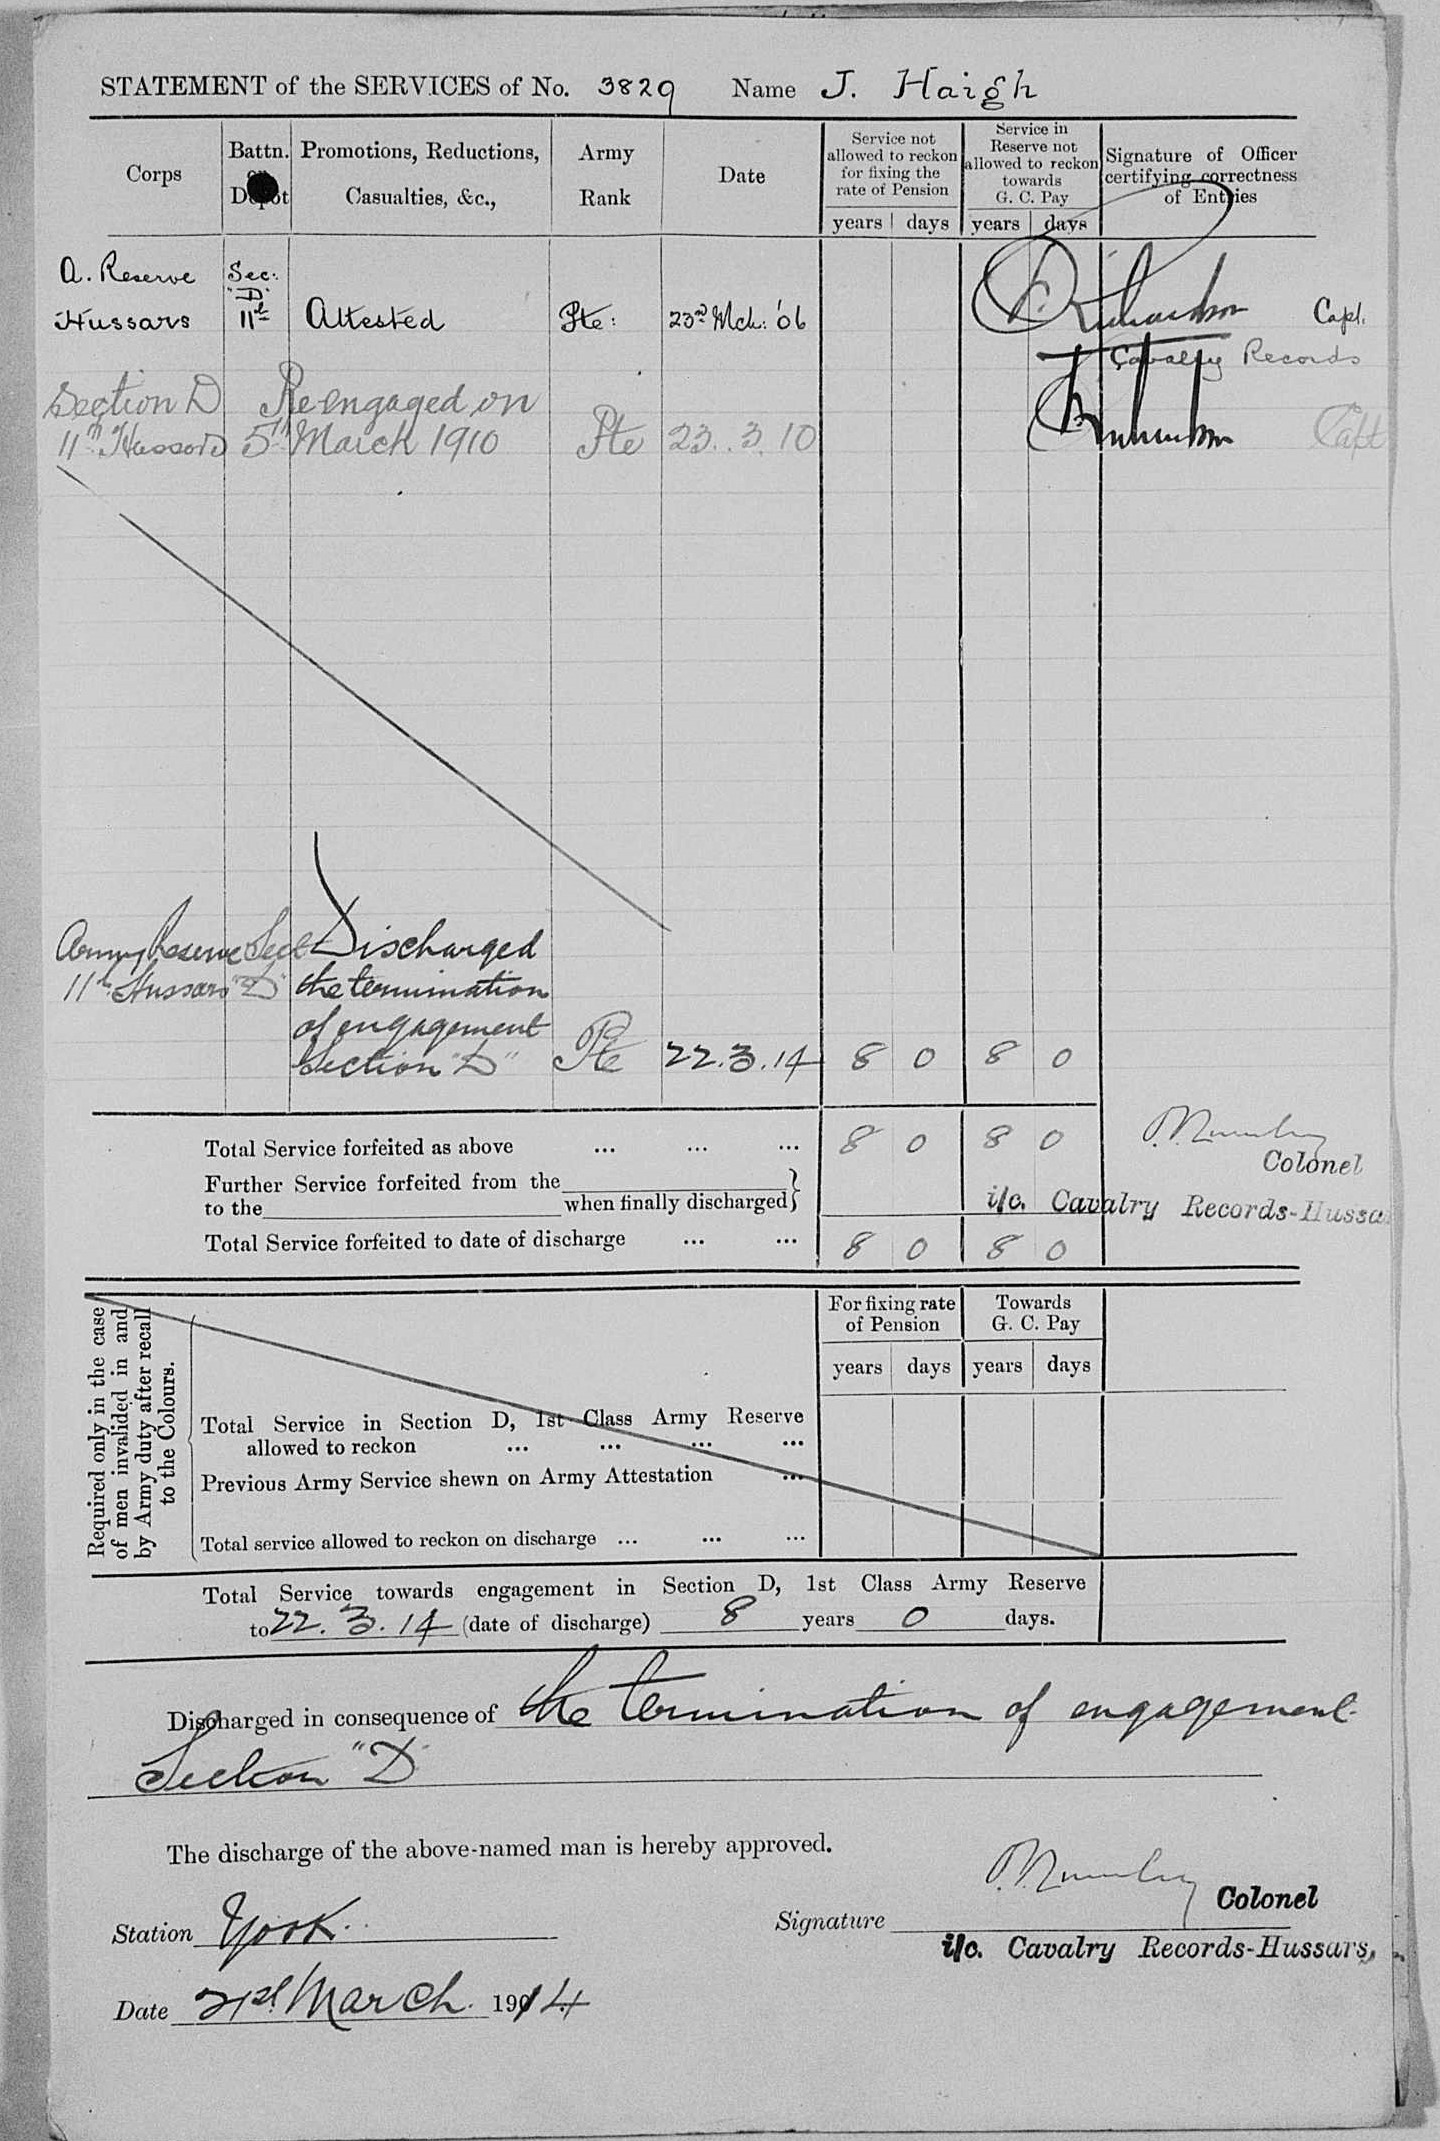 STATEMENT of the SERVICES of No. 3829 Name J. Haigh
Corps
Battn. or Depot
Promotions, Reductions, Casualties, &c.,
Army Rank
Date
Service not allowed to reckon for fixing the rate of Pension
Service in Reserve not allowed to reckon towards G. C. Pay
Signature of Officer certifying correctness of Entries
years days years days
A. Reserve Sec: "D"
Hussars 11th Attested Pte: 23rd Mch: '06 Richardson Capt.
Cavalry Records
Section D Re-engaged on
11th Hussars 5th March 1910 Pte 23.3.10 Richardson Capt
Army Reserve Sect Discharged
11th Hussars "D" the termination
of engagement
Section "D" Pte 22.3.14 8 0 8 0
Total Service forfeited as above ... ... ... 8 0 8 0
Colonel
Further Service forfeited from the
to the when finally discharged}
i/c. Cavalry Records-Hussa
Total Service forfeited to date of discharge ... ... 8 0 8 0
Required only in the case of men invalided in and by Army duty after recall to the Colours.
For fixing rate of Pension
Towards G. C. Pay
years days years days
Total Service in Section D, 1st Class Army Reserve
allowed to reckon ... ... ... ...
Previous Army Service shewn on Army Attestation ...
Total service allowed to reckon on discharge ... ... ...
Total Service towards engagement in Section D, 1st Class Army Reserve
to 22.3.14 (date of discharge) 8 years 0 days.
Discharged in consequence of the termination of engagement
Section "D"
The discharge of the above-named man is hereby approved.
Station York.
Signature Colonel
i/c. Cavalry Records-Hussars,
Date 21st March. 1914